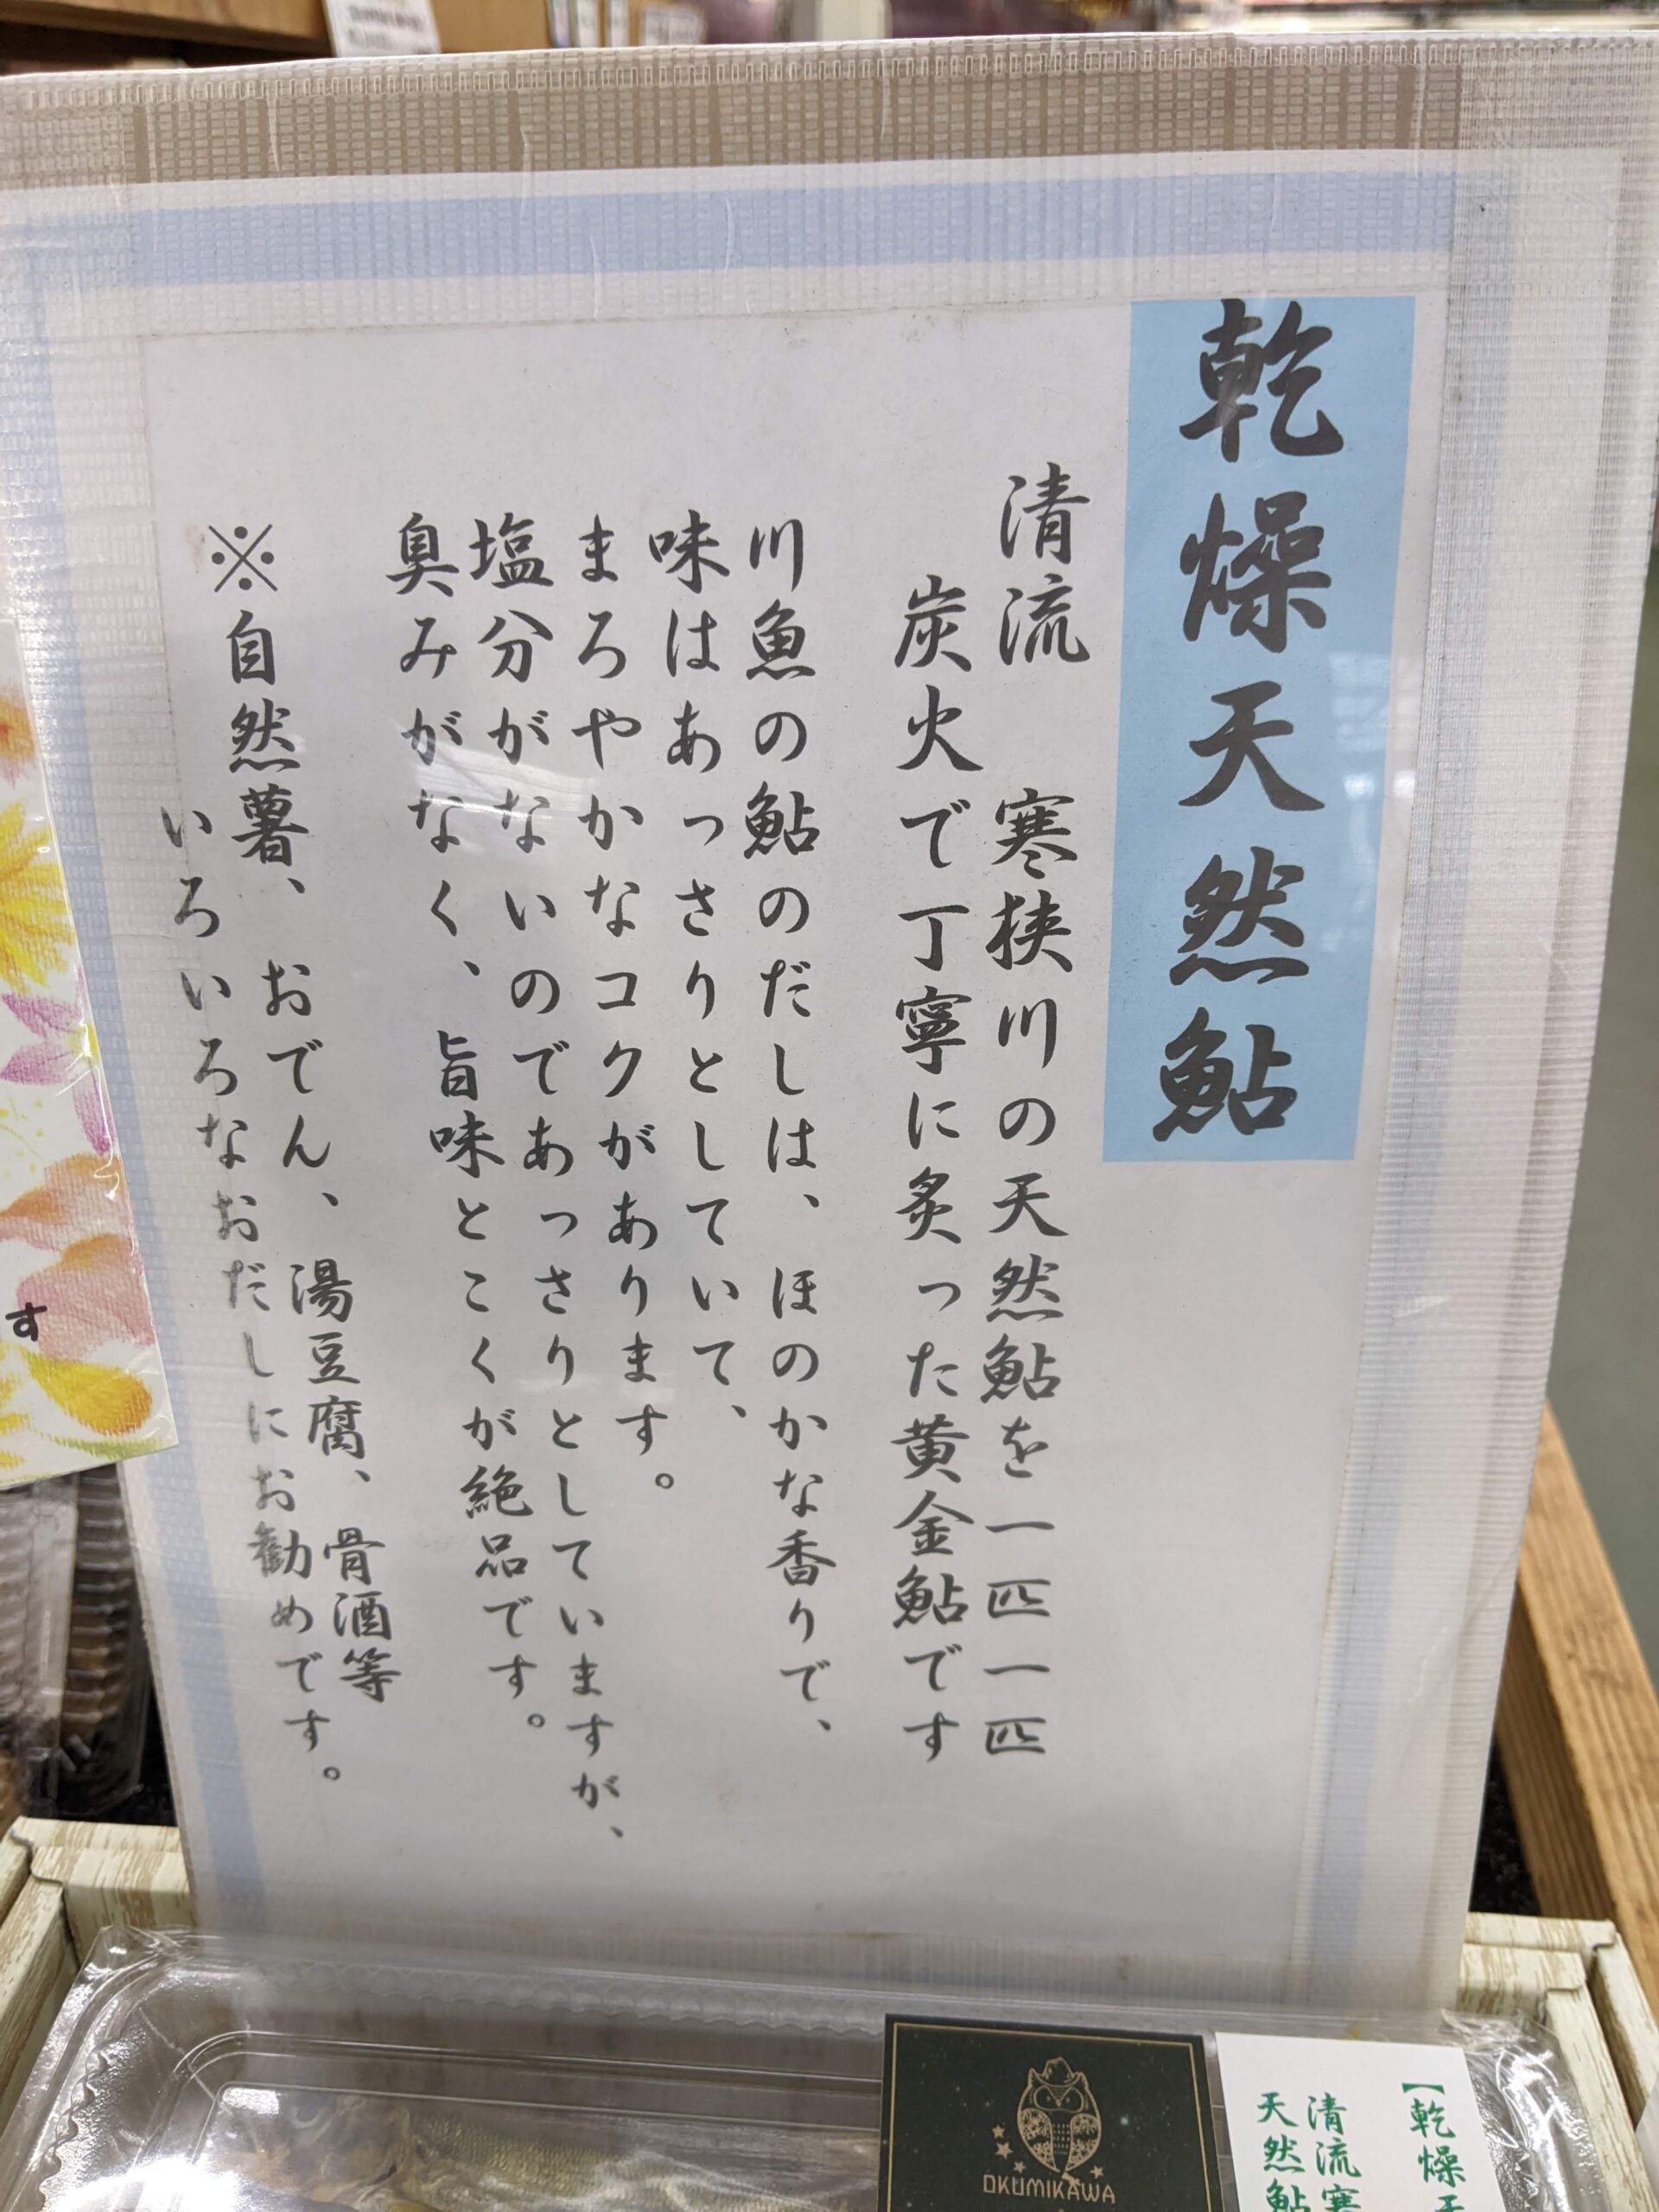 乾燥天然鮎
清流 寒狭川の天然鮎を一匹一匹
炭火で丁寧に炙った黄金鮎です
川魚の鮎のだしは、ほのかな香りで、
味はあっさりとしていて、
まろやかなコクがあります。
塩分がないのであっさりとしていますが、
臭みがなく、旨味とこくが絶品です。
※自然薯、おでん、湯豆腐、骨酒等
いろいろなおだしにお勧めです。
す
OKUMIKAWA
【乾燥天
清流寒
天然鮎